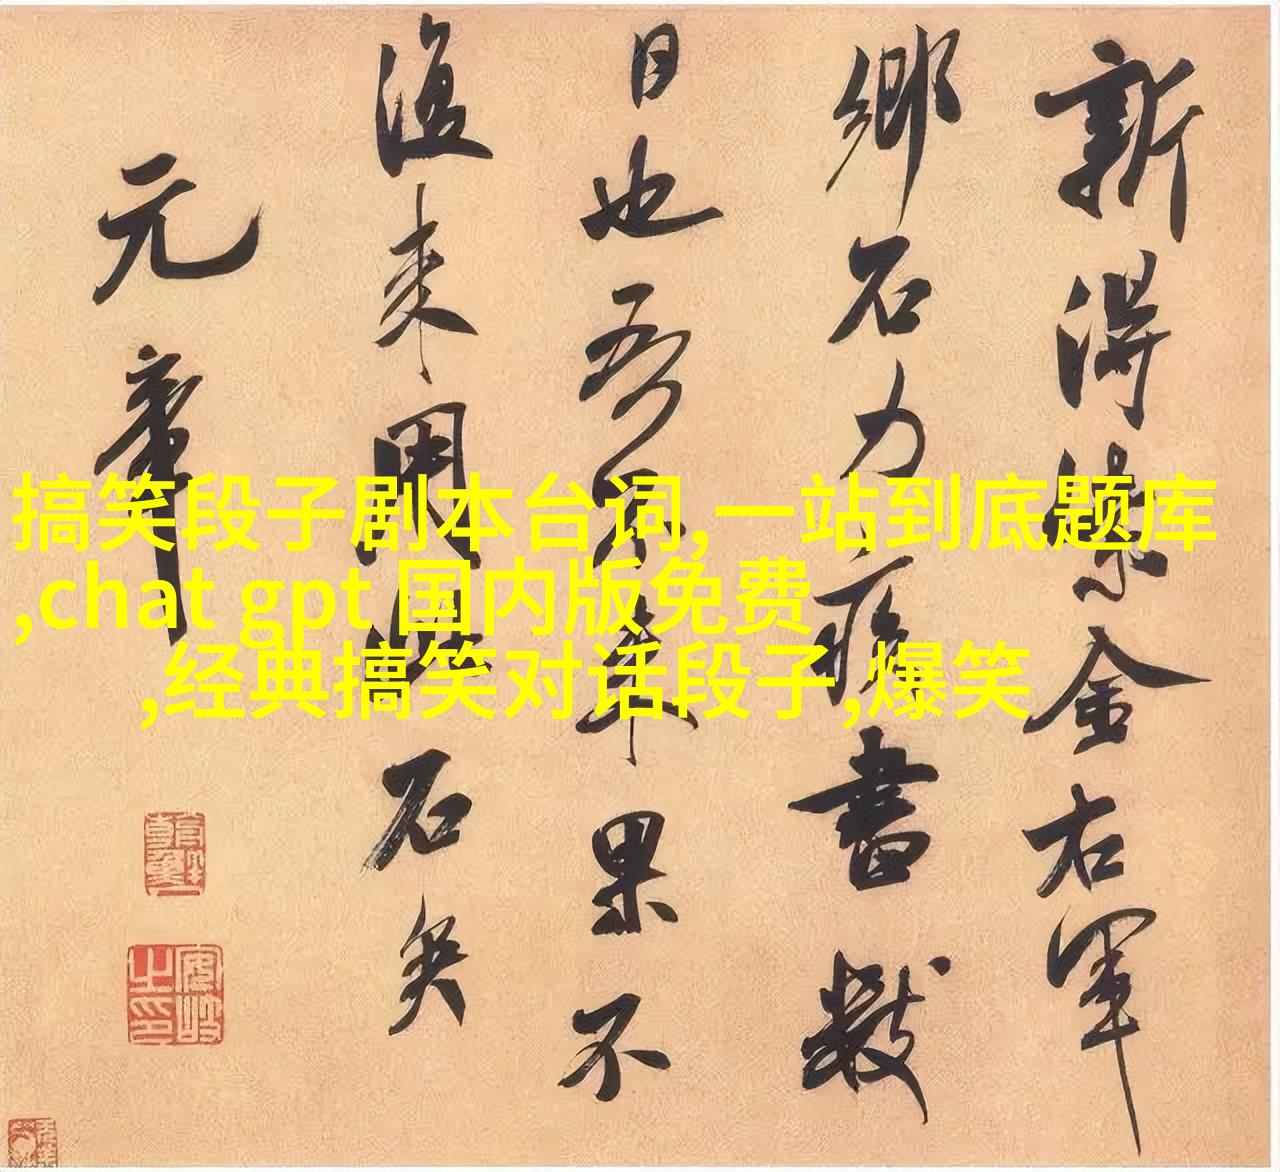 新得紫金右軍
鄉石力疾書數
日也吾不來果不
復來用此石矣
元章
搞笑段子剧本台词,一站到底题库
,chat gpt 国内版免费
,经典搞笑对话段子,爆笑